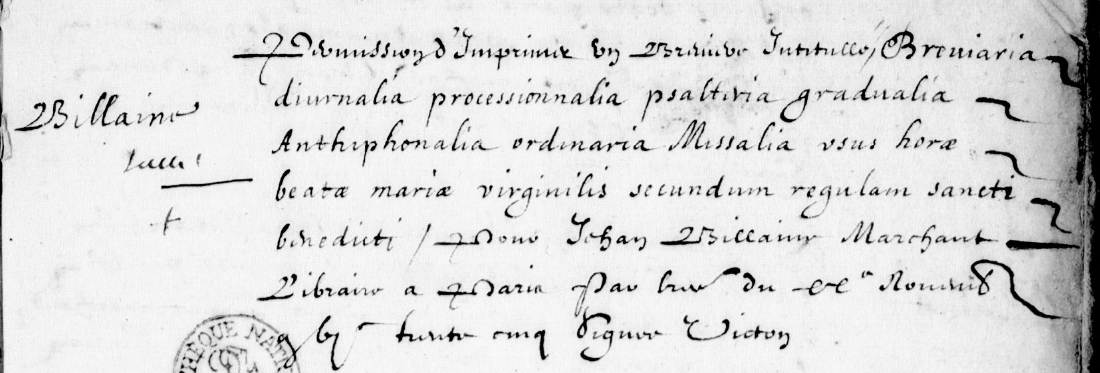 Permission d'Imprimer vn Breuiere Intitullé / Breviaria
diurnalia processionnalia psaltiria gradualia
Billaine
Anthiphonalia ordinaria Missalia vsus horæ
beatæ mariæ virginilis secundum regulam sancti
benedicti / Pour Jehan Billaine Marchant
Libraire a Paris Par lres du xxe Novemb
gbj trente cinq Signee Victon
THEQUE NATI